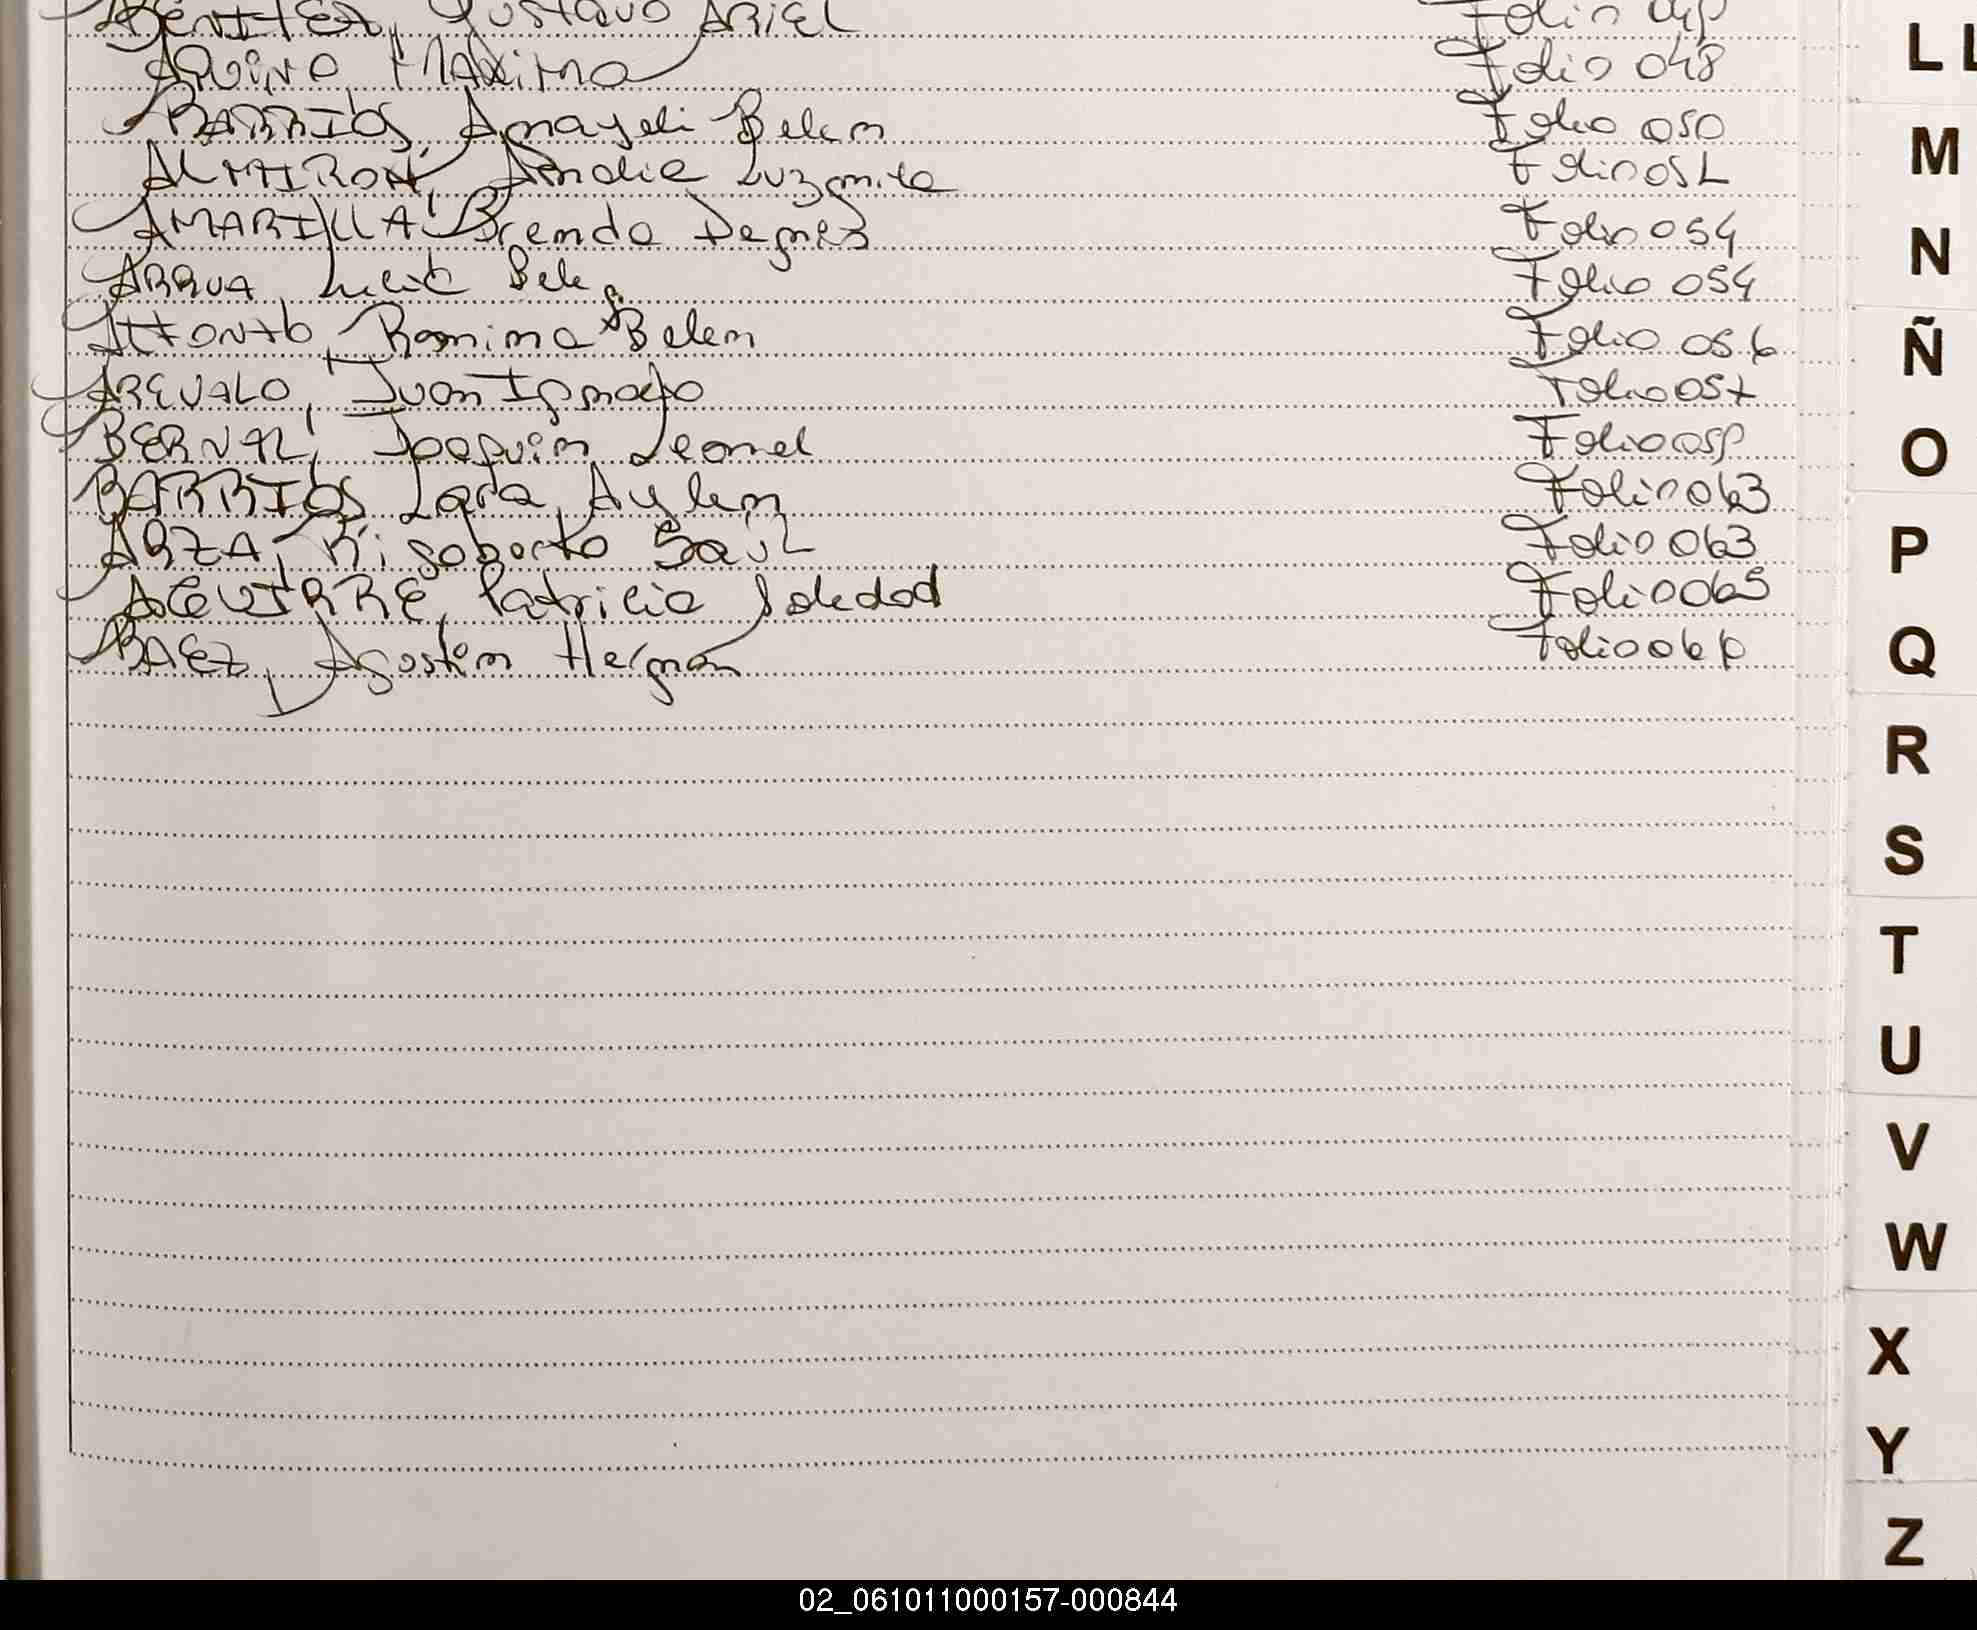 BENITEZ, Gustavo ARIEL Folio 049
AQUINO MAXIMO Folio 048
BARRIOS, Anayeli Belen Folio 050
ALMIRON, Analia Luzmila Folio 051
AMARILLA Brenda Folio 054
ARRUA Lucia Bele Folio 054
Romina Belen Folio 056
AREVALO, Juan Ignacio Folio 057
BERNAL, Joaquin Leonel Folio 059
BARRIOS Lara Aylen Folio 063
ARZA, Rigoberto Saul Folio 063
AGUIRRE, Patricia Soledad Folio 065
BAEZ, Agostin Hernan Folio
LL
M
N
Ñ
O
P
Q
R
S
T
U
V
W
X
Y
Z
02_061011000157-000844